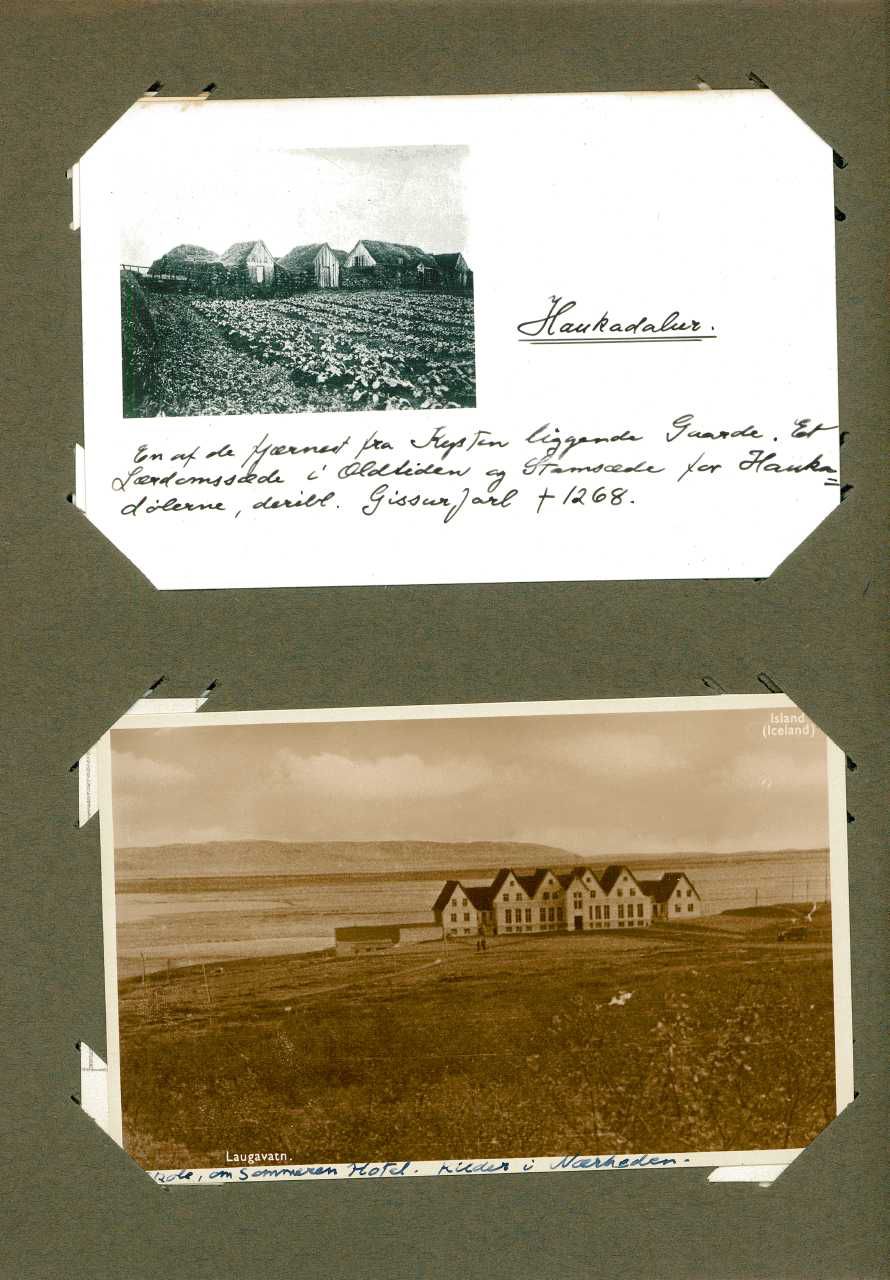 Haukadalur.
En af de fjærnest fra Kysten liggende Gaarde. Et
Lærdomssæde i Oldtiden og Stamsæde for Hauka=
dølerne, deribl. Gissur Jarl † 1268.
Island
(Iceland)
Laugavatn.
om Sommeren Hotel. Kilder i Nærheden.